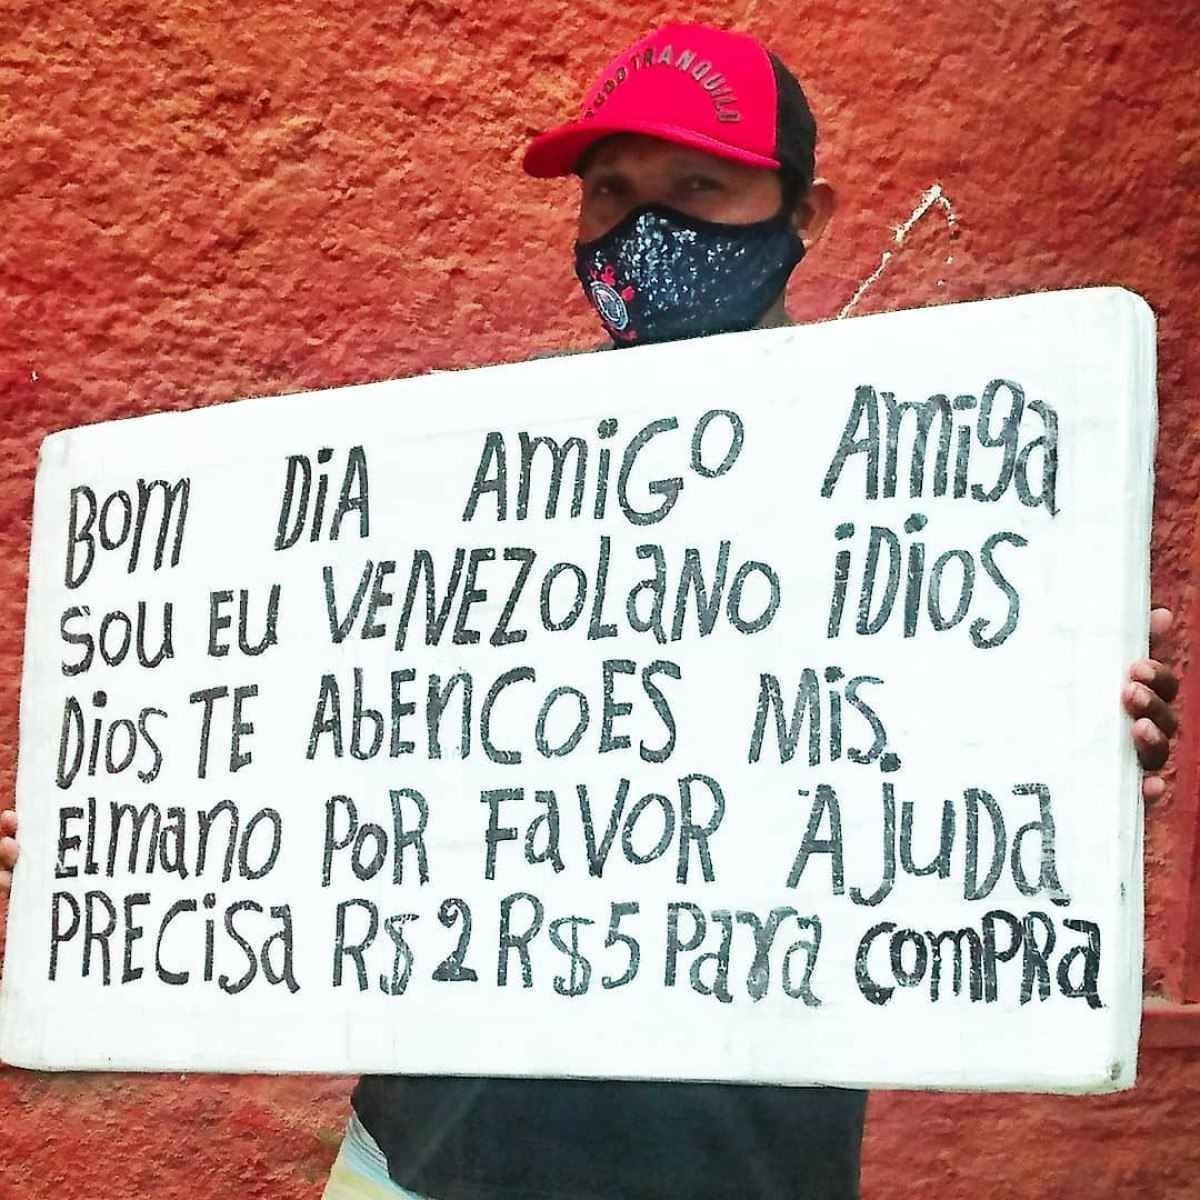 TUDO TRANQUILO
BOM DIA AMIGO AMIGA
SOU EU VENEZOLANO IDIOS
DIOS TE ABENCOES MIS.
ELMANO POR FAVOR AJUDA
PRECISA R$2 R$5 PARA COMPRA